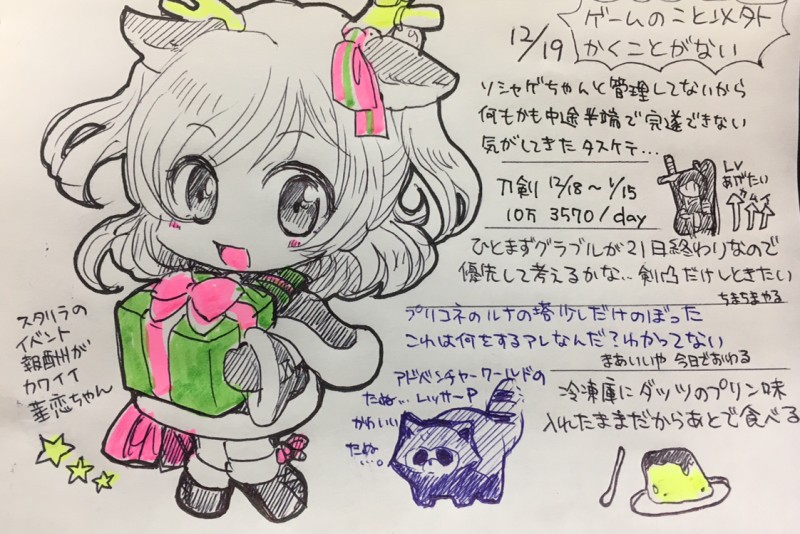 12/19
ゲームのこと以外
かくことがない
ソシャゲちゃんと管理してないから
何もかも中途半端で完遂できない
気がしてきた タスケテ…
刀剣 12/18～1/15
10万 3570/day
LV
あげたい
カムイ
ひとまずグラブルが21日終わりなので
優先して考えるかな… 剣凸だけしときたい
ちまちまやる
プリコネのルナの塔少しだけのぼった
これは何をするアレなんだ?わかってない
まあいいや 今日でおわる
アドベンチャーワールドの
たぬ… レッサーP
かわいい
たぬ
…。
冷凍庫にダッツのプリン味
入れたままだからあとで食べる
スタリラの
イベント
報酬が
カワイイ
華恋ちゃん